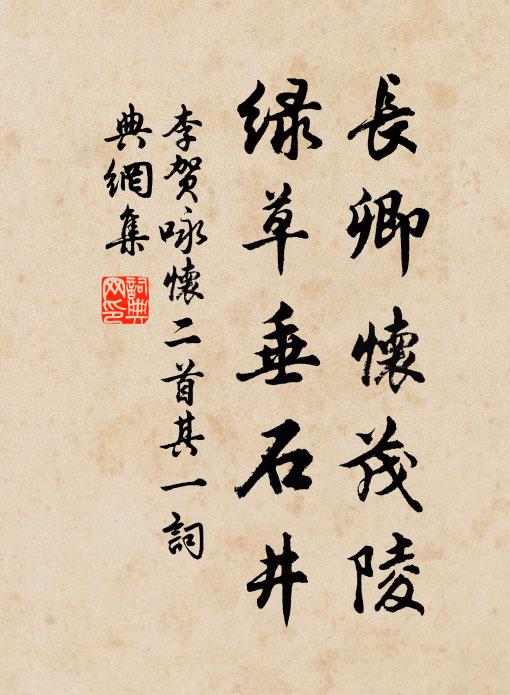 長卿懷茂陵
緑草垂石井
李贺咏懷二首其一詞
典網集
詞典
网印